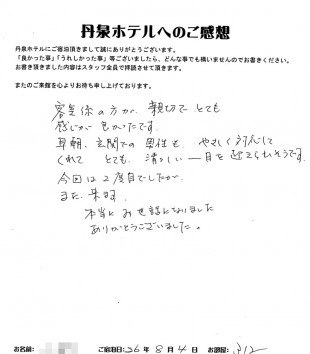 丹泉ホテルへのご感想
丹泉ホテルにご宿泊頂きまして誠にありがとうございます。
「良かった事」「うれしかった事」等ございましたら、どんな事でも構いませんのでお書きください。
お書き頂きました内容はスタッフ全員で拝読させて頂きます。
またのご来館を心よりお待ち申し上げております。
客室係の方が、親切で とても
感じが良かったです。
早朝、玄関での 男性も、やさしく対応して
くれて とても、清々しい 一日を 迎えられそうです。
今回は2度目でしたが、
また、来ます。
本当に お世話になりました
ありがとうございました。
お名前: ご宿泊日: 26年 8月 4日 お部屋: 312